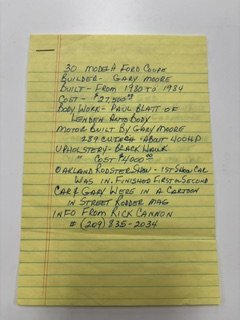 30 MODEL A FORD COUPE
BUILDER- GARY MOORE
BUILT- FROM 1980 TO 1984
COST- $27,500.00
BODY WORK- PAUL BLATT OF
AUTO BODY
MOTOR BUILT BY GARY MOORE
289 CU INCH - ABOUT 400 HP
UPHOLSTERY- BLACK
" COST $4000.00
OAKLAND RODSTER SHOW - 1ST SHOW CAR
WAS IN. FINISHED FIRST IN SECOND
CAR & GARY WERE IN A CARTOON
IN STREET RODDER MAG
INFO FROM RICK CANNON
# (209) 835-2034